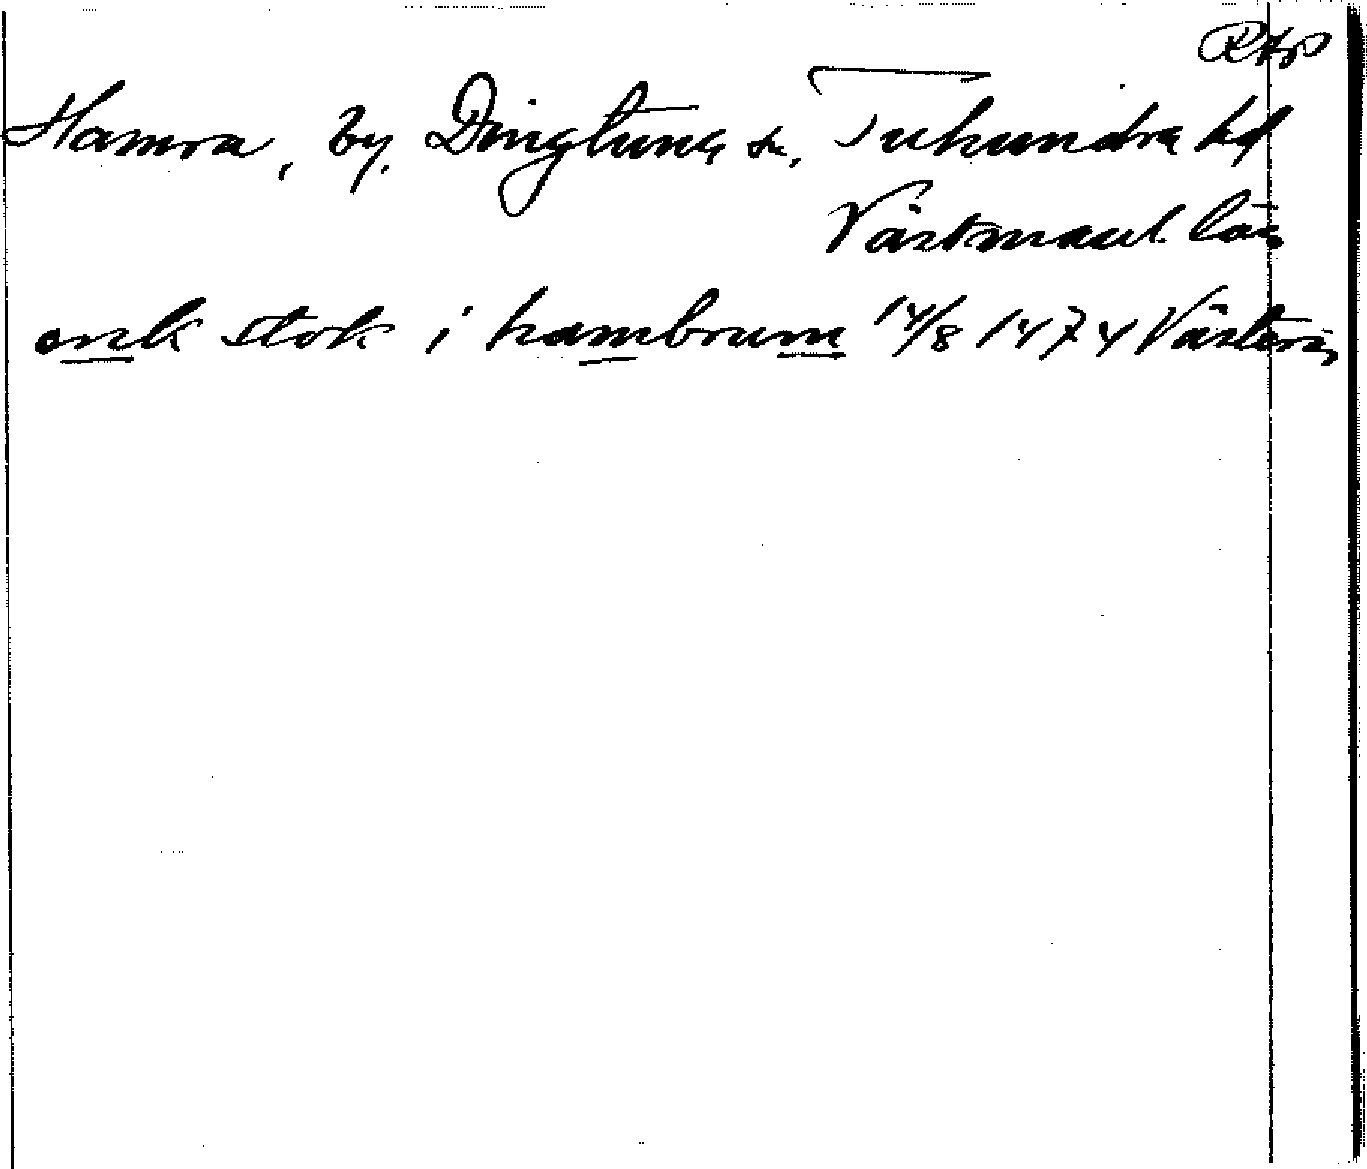 RAp
Hamra, by, Dingtuna sn, Tuhundra hd
Västmanl. län
erik stok i hambrum 14/8 1474 Västerås